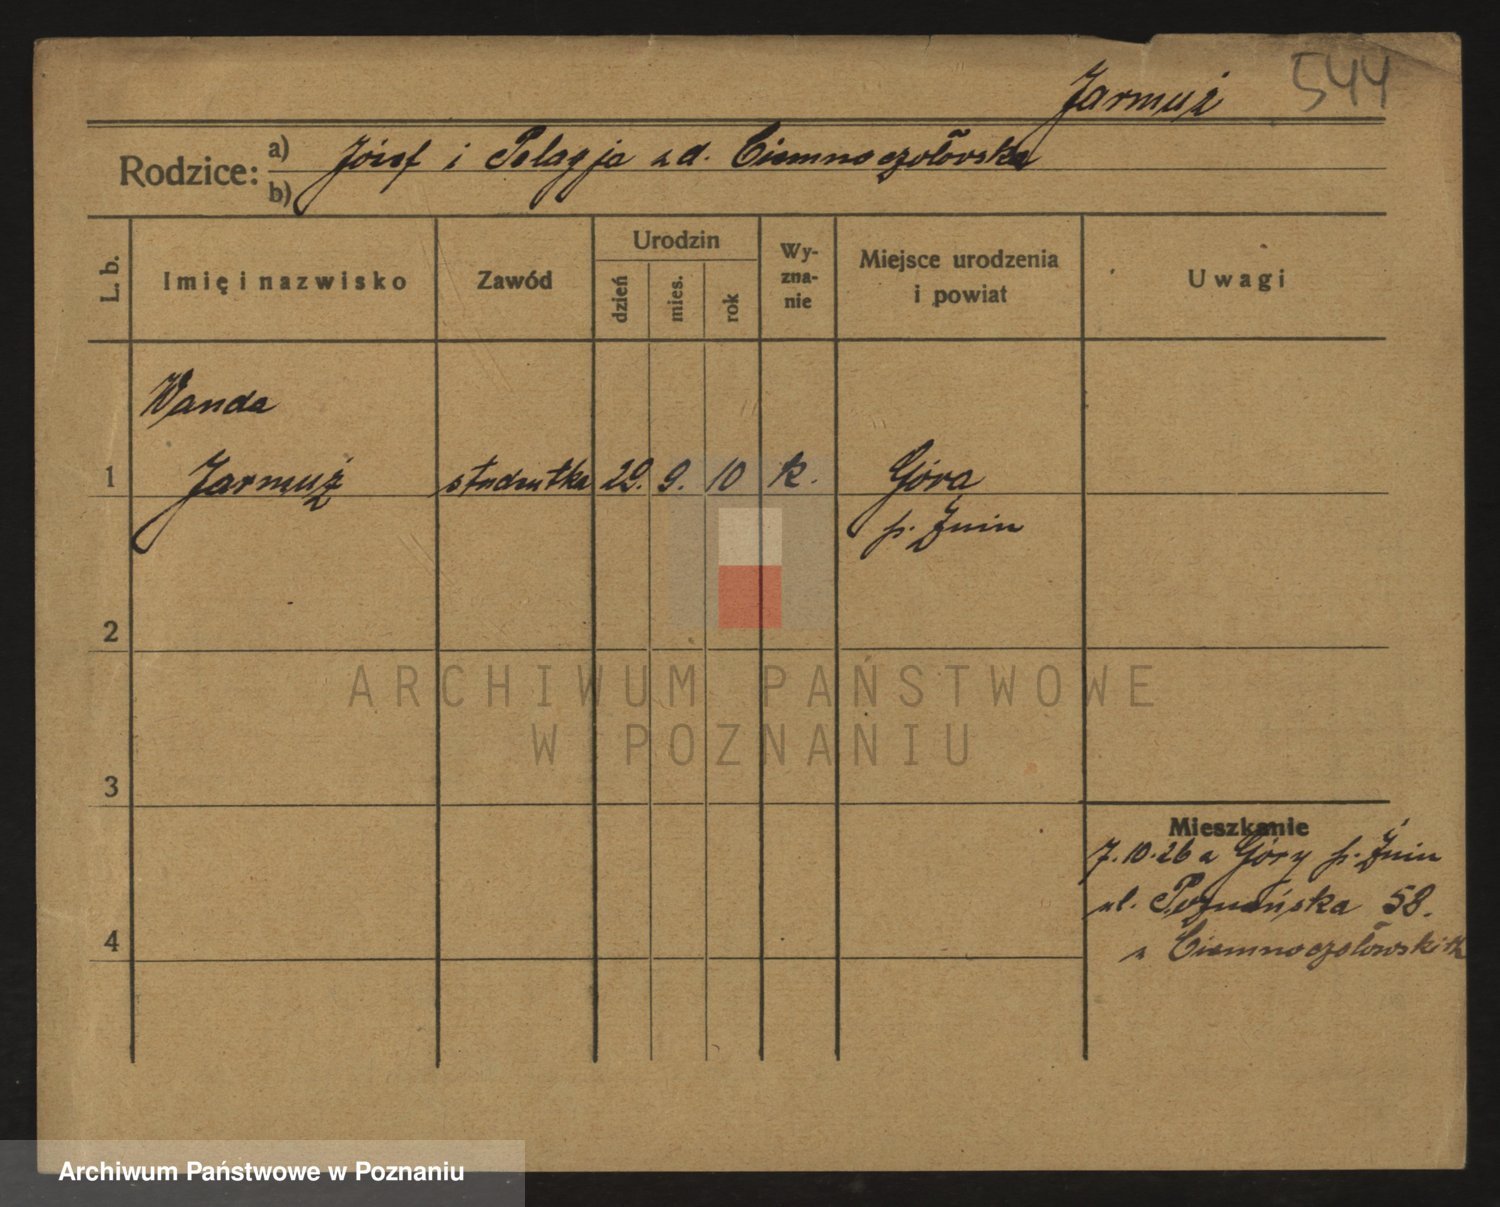 Jarmuż 544
Rodzice: a) Józef i Pelagja z d. Ciemnoczołowska
b)
L. b. Imię i nazwisko Zawód Urodzin dzień mies. rok Wy-zna-nie Miejsce urodzenia i powiat Uwagi
Wanda
1 Jarmuż studentka 29. 9. 10 k. Góra
p. Żnin
2
3
4
Mieszkanie
7.10.26 z Góry p. Żnin
ul. Poznańska 58.
z Ciemnoczołowski
ARCHIWUM PAŃSTWOWE
W POZNANIU
Archiwum Państwowe w Poznaniu